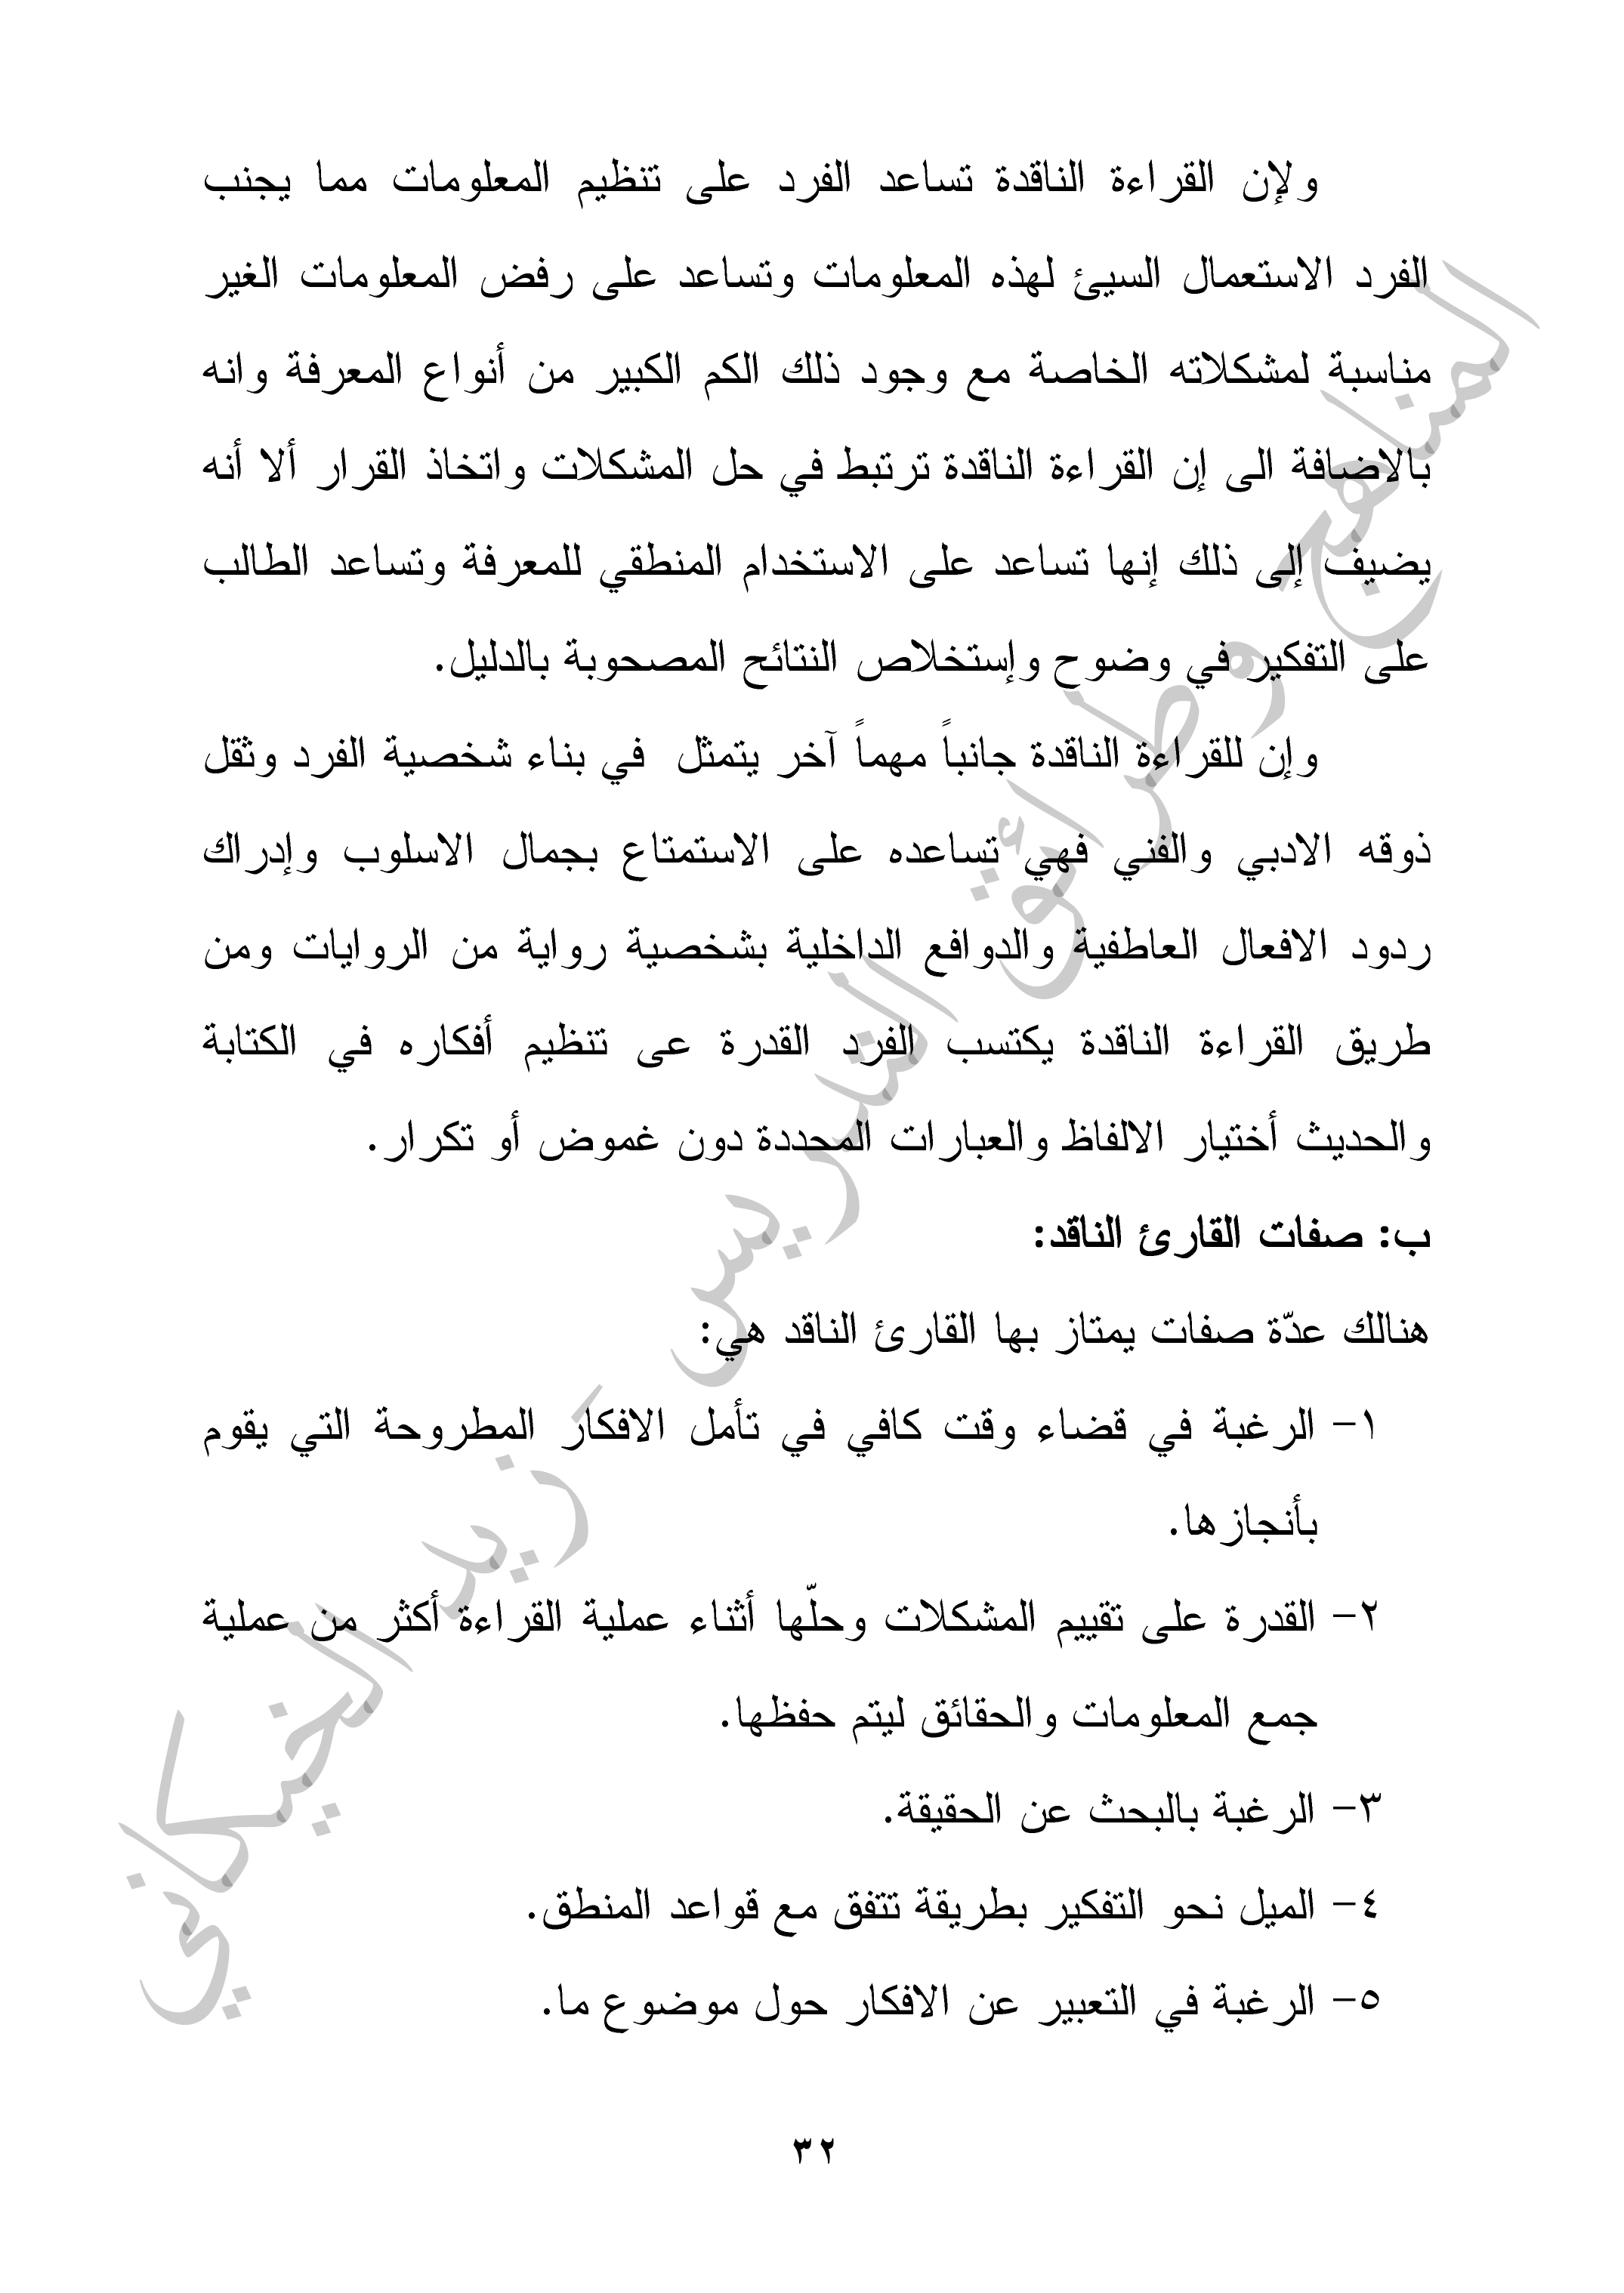 ولإن القراءة الناقدة تساعد الفرد على تنظيم المعلومات مما يجنب
الفرد الاستعمال السيئ لهذه المعلومات وتساعد على رفض المعلومات الغير
مناسبة لمشكلاته الخاصة مع وجود ذلك الكم الكبير من أنواع المعرفة وانه
بالاضافة الى إن القراءة الناقدة ترتبط في حل المشكلات واتخاذ القرار ألا أنه
يضيف إلى ذلك إنها تساعد على الاستخدام المنطقي للمعرفة وتساعد الطالب
على التفكير في وضوح وإستخلاص النتائح المصحوبة بالدليل.
وإن للقراءة الناقدة جانباً مهماً آخر يتمثل في بناء شخصية الفرد وثقل
ذوقه الادبي والفني فهي تساعده على الاستمتاع بجمال الاسلوب وإدراك
ردود الافعال العاطفية والدوافع الداخلية بشخصية رواية من الروايات ومن
طريق القراءة الناقدة يكتسب الفرد القدرة عى تنظيم أفكاره في الكتابة
والحديث أختيار الالفاظ والعبارات المحددة دون غموض أو تكرار.
ب: صفات القارئ الناقد:
هنالك عدّة صفات يمتاز بها القارئ الناقد هي:
١- الرغبة في قضاء وقت كافي في تأمل الافكار المطروحة التي يقوم
بأنجازها.
٢- القدرة على تقييم المشكلات وحلّها أثناء عملية القراءة أكثر من عملية
جمع المعلومات والحقائق ليتم حفظها.
٣- الرغبة بالبحث عن الحقيقة.
٤- الميل نحو التفكير بطريقة تتفق مع قواعد المنطق.
٥- الرغبة في التعبير عن الافكار حول موضوع ما.
٣٢
المناهج وطرائق التدريس - زيد الخيكاني